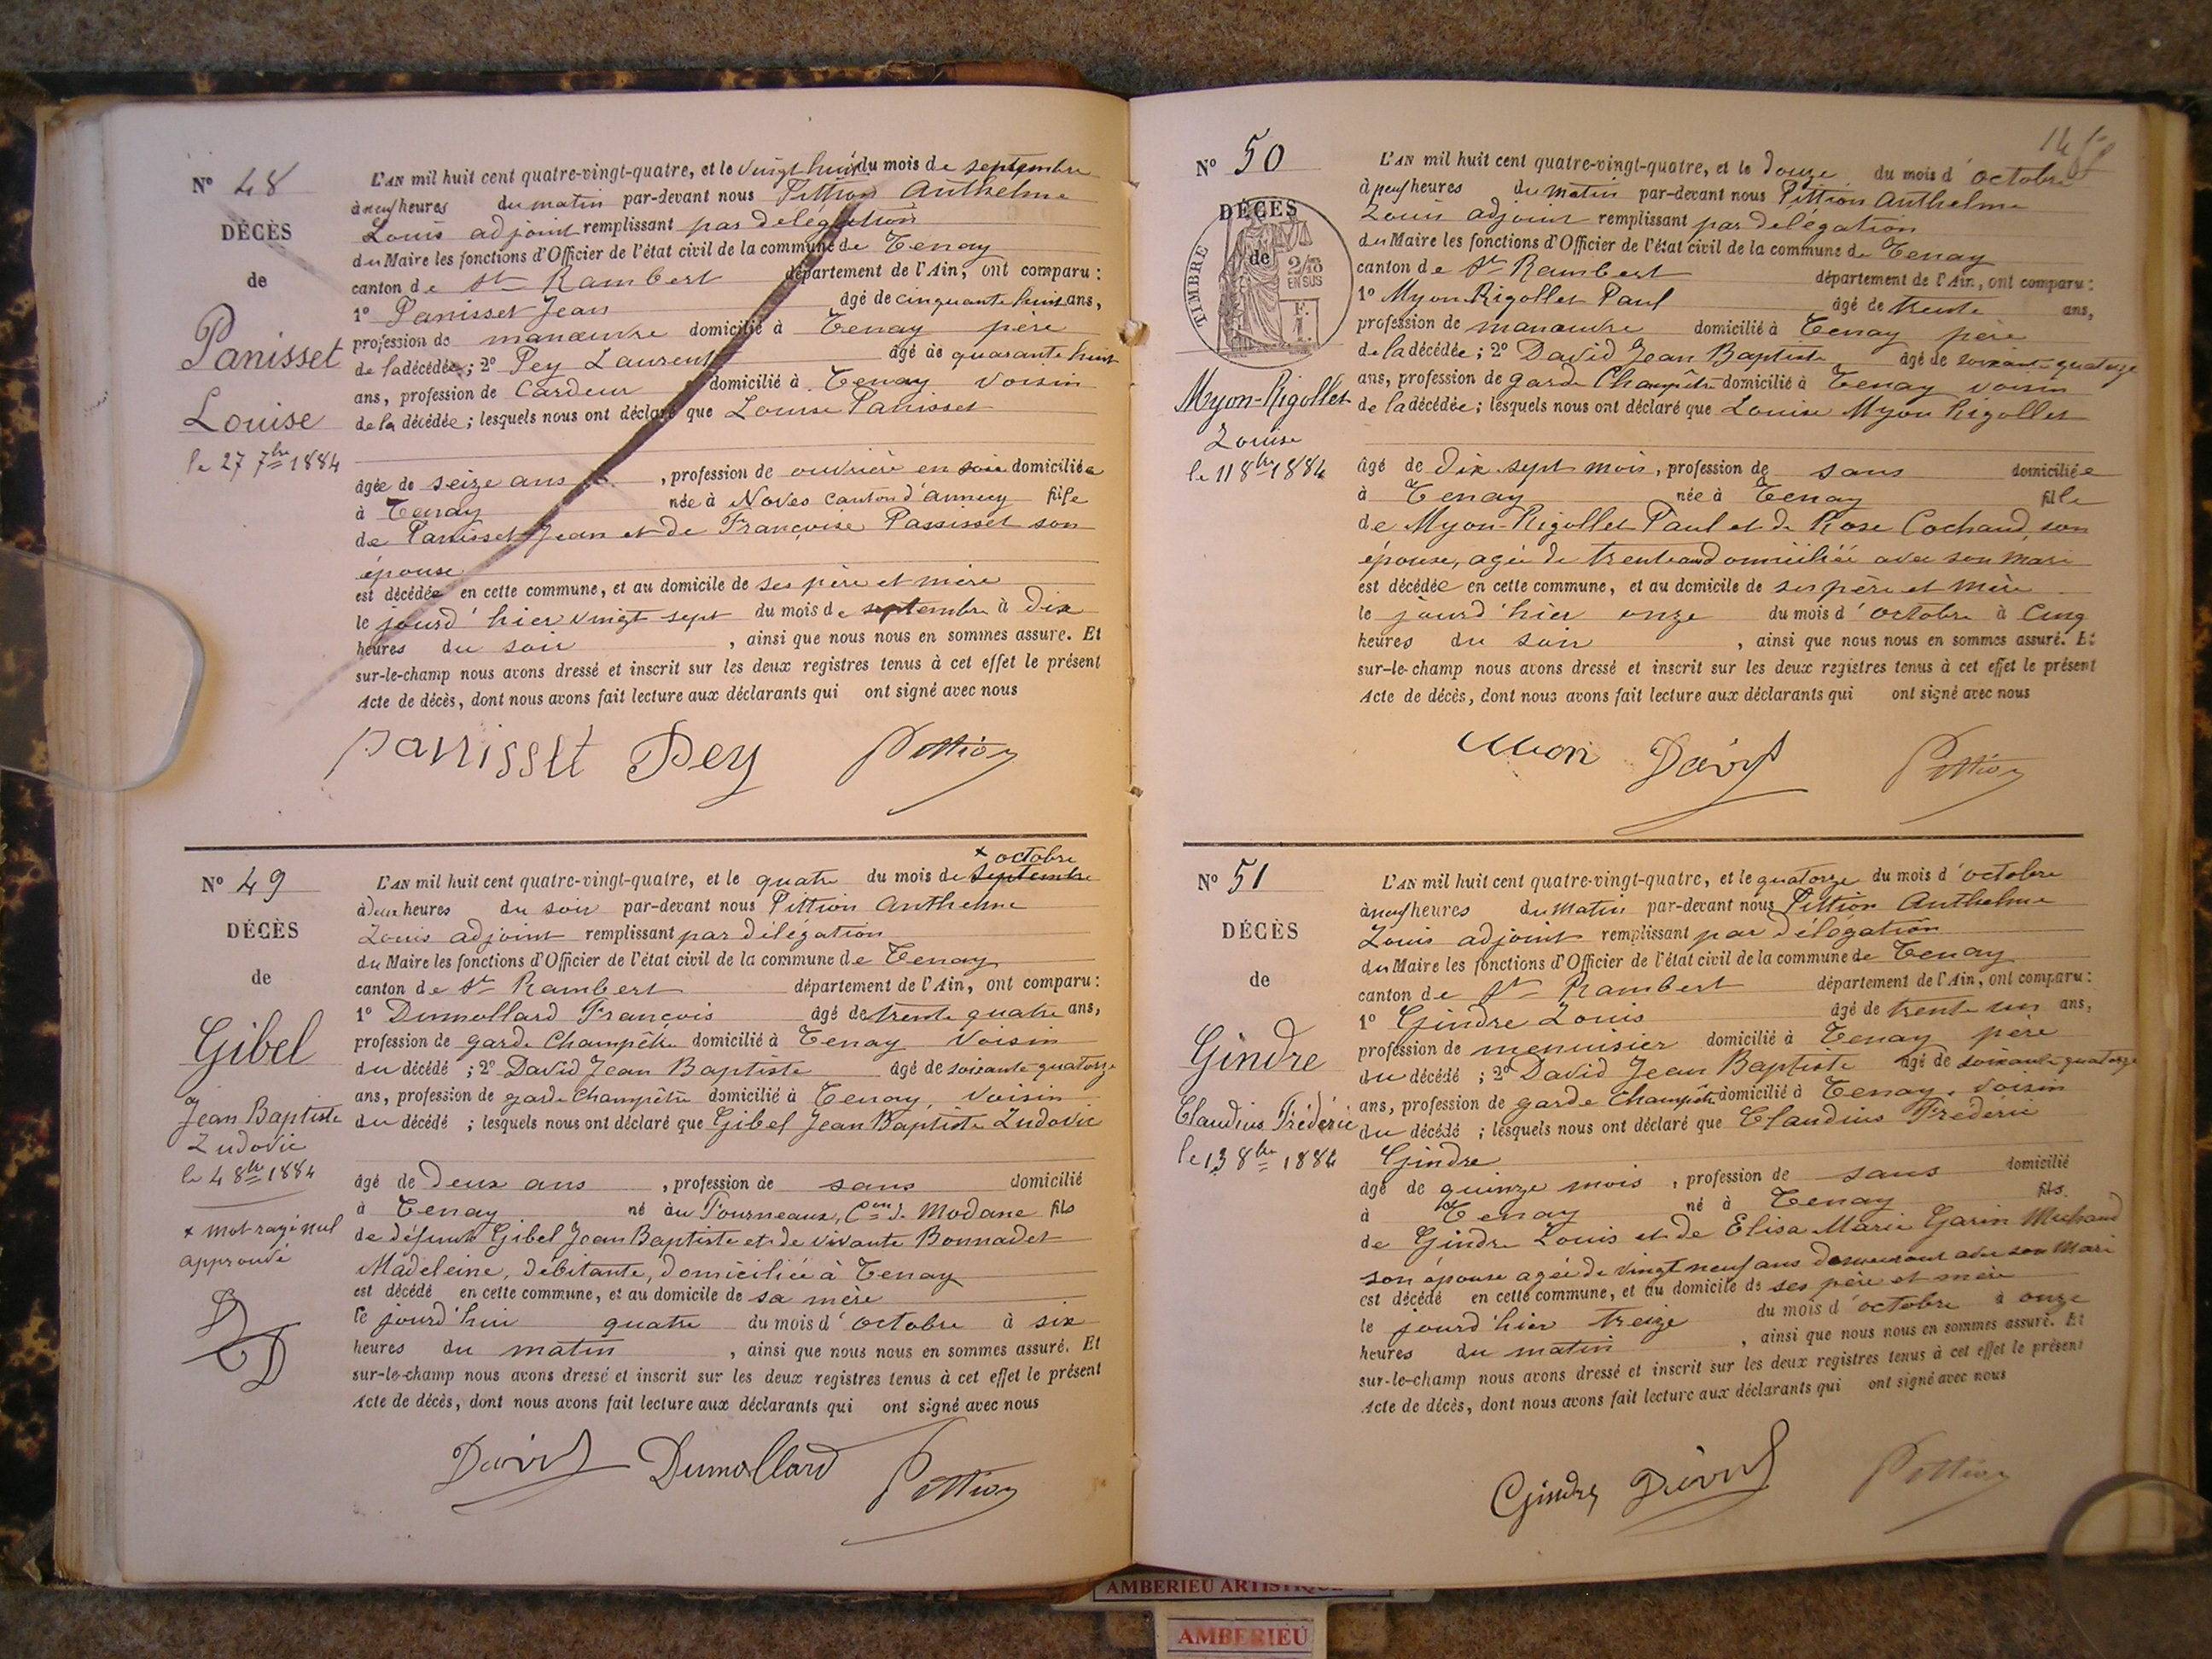 N° 48
DÉCÈS
de
Panisset
Louise
le 27 7bre 1884
L'AN mil huit cent quatre-vingt-quatre, et le vingt huit du mois de septembre
à neuf heures du matin par-devant nous Pittion Anthelme
Louis adjoint remplissant par délégation
du Maire les fonctions d'Officier de l'état civil de la commune de Tenay
canton de St Rambert département de l'Ain, ont comparu :
1° Panisset Jean âgé de cinquante huit ans,
profession de manœuvre domicilié à Tenay père
de la décédée ; 2° Pey Laurent âgé de quarante huit
ans, profession de Cardeur domicilié à Tenay voisin
de la décédée ; lesquels nous ont déclaré que Louise Panisset
âgée de seize ans , profession de ouvrière en soie domiciliée
à Tenay née à Noves canton d'annecy fille
de Panisset Jean et de Françoise Passisset son
épouse
est décédée en cette commune, et au domicile de ses père et mère
le jourd'hier vingt sept du mois de septembre à dix
heures du soir , ainsi que nous nous en sommes assuré. Et
sur-le-champ nous avons dressé et inscrit sur les deux registres tenus à cet effet le présent
Acte de décès, dont nous avons fait lecture aux déclarants qui ont signé avec nous
Panisset Pey Pittion
N° 49
DÉCÈS
de
Gibel
Jean Baptiste
Ludovic
le 4 8bre 1884
x mot rayé nul
approuvé
x octobre
L'AN mil huit cent quatre-vingt-quatre, et le quatre du mois de septembre
à deux heures du soir par-devant nous Pittion Anthelme
Louis adjoint remplissant par délégation
du Maire les fonctions d'Officier de l'état civil de la commune de Tenay
canton de St Rambert département de l'Ain, ont comparu :
1° Dumollard François âgé de trente quatre ans,
profession de garde Champêtre domicilié à Tenay Voisin
du décédé ; 2° David Jean Baptiste âgé de soixante-quatorze
ans, profession de garde Champêtre domicilié à Tenay, Voisin
du décédé ; lesquels nous ont déclaré que Gibel Jean Baptiste Ludovic
âgé de deux ans , profession de sans domicilié
à Tenay né au Fourneaux, Con de Modane fils
de défunt Gibel Jean Baptiste et de vivante Bonnadet
Madeleine, débitante, domiciliée à Tenay
est décédé en cette commune, et au domicile de sa mère
le jourd'hui quatre du mois d'octobre à six
heures du matin , ainsi que nous nous en sommes assuré. Et
sur-le-champ nous avons dressé et inscrit sur les deux registres tenus à cet effet le présent
Acte de décès, dont nous avons fait lecture aux déclarants qui ont signé avec nous
David Dumollard Pittion
N° 50
DÉCÈS
de
TIMBRE
2/10
EN SUS
Myon-Rigollet
Louise
le 11 8bre 1884
L'AN mil huit cent quatre-vingt-quatre, et le douze du mois d'octobre
à neuf heures du matin par-devant nous Pittion Anthelme
Louis adjoint remplissant par délégation
du Maire les fonctions d'Officier de l'état civil de la commune de Tenay
canton de St Rambert département de l'Ain, ont comparu :
1° Myon-Rigollet Paul âgé de trente ans,
profession de manœuvre domicilié à Tenay père
de la décédée ; 2° David Jean Baptiste âgé de soixante-quatorze
ans, profession de garde Champêtre domicilié à Tenay voisin
de la décédée ; lesquels nous ont déclaré que Louise Myon Rigollet
âgé de dix sept mois, profession de sans domiciliée
à Tenay née à Tenay fille
de Myon-Rigollet Paul et de Rose Cochaud, son
épouse, agée de trente ans domiciliée avec son mari
est décédée en cette commune, et au domicile de ses père et mère
le jourd'hier onze du mois d'octobre à cinq
heures du soir , ainsi que nous nous en sommes assuré. Et
sur-le-champ nous avons dressé et inscrit sur les deux registres tenus à cet effet le présent
Acte de décès, dont nous avons fait lecture aux déclarants qui ont signé avec nous
David Pittion
N° 51
DÉCÈS
de
Gindre
Claudius Frédéric
le 13 8bre 1884
L'AN mil huit cent quatre-vingt-quatre, et le quatorze du mois d'octobre
à neuf heures du matin par-devant nous Pittion Anthelme
Louis adjoint remplissant par délégation
du Maire les fonctions d'Officier de l'état civil de la commune de Tenay
canton de St Rambert département de l'Ain, ont comparu :
1° Gindre Louis âgé de trente un ans,
profession de menuisier domicilié à Tenay père
du décédé ; 2° David Jean Baptiste âgé de soixante-quatorze
ans, profession de garde Champêtre domicilié à Tenay, Voisin
du décédé ; lesquels nous ont déclaré que Claudius Frédéric
Gindre
âgé de quinze mois , profession de sans domicilié
à Tenay né à Tenay fils
de Gindre Louis et de Elisa Marie Garin Michaud
son épouse agée de vingt neuf ans demeurant avec son mari
est décédé en cette commune, et au domicile de ses père et mère
le jourd'hier treize du mois d'octobre à onze
heures du matin , ainsi que nous nous en sommes assuré. Et
sur-le-champ nous avons dressé et inscrit sur les deux registres tenus à cet effet le présent
Acte de décès, dont nous avons fait lecture aux déclarants qui ont signé avec nous
Gindre David Pittion
AMBERIEU ARTISTIQUE
AMBERIEU